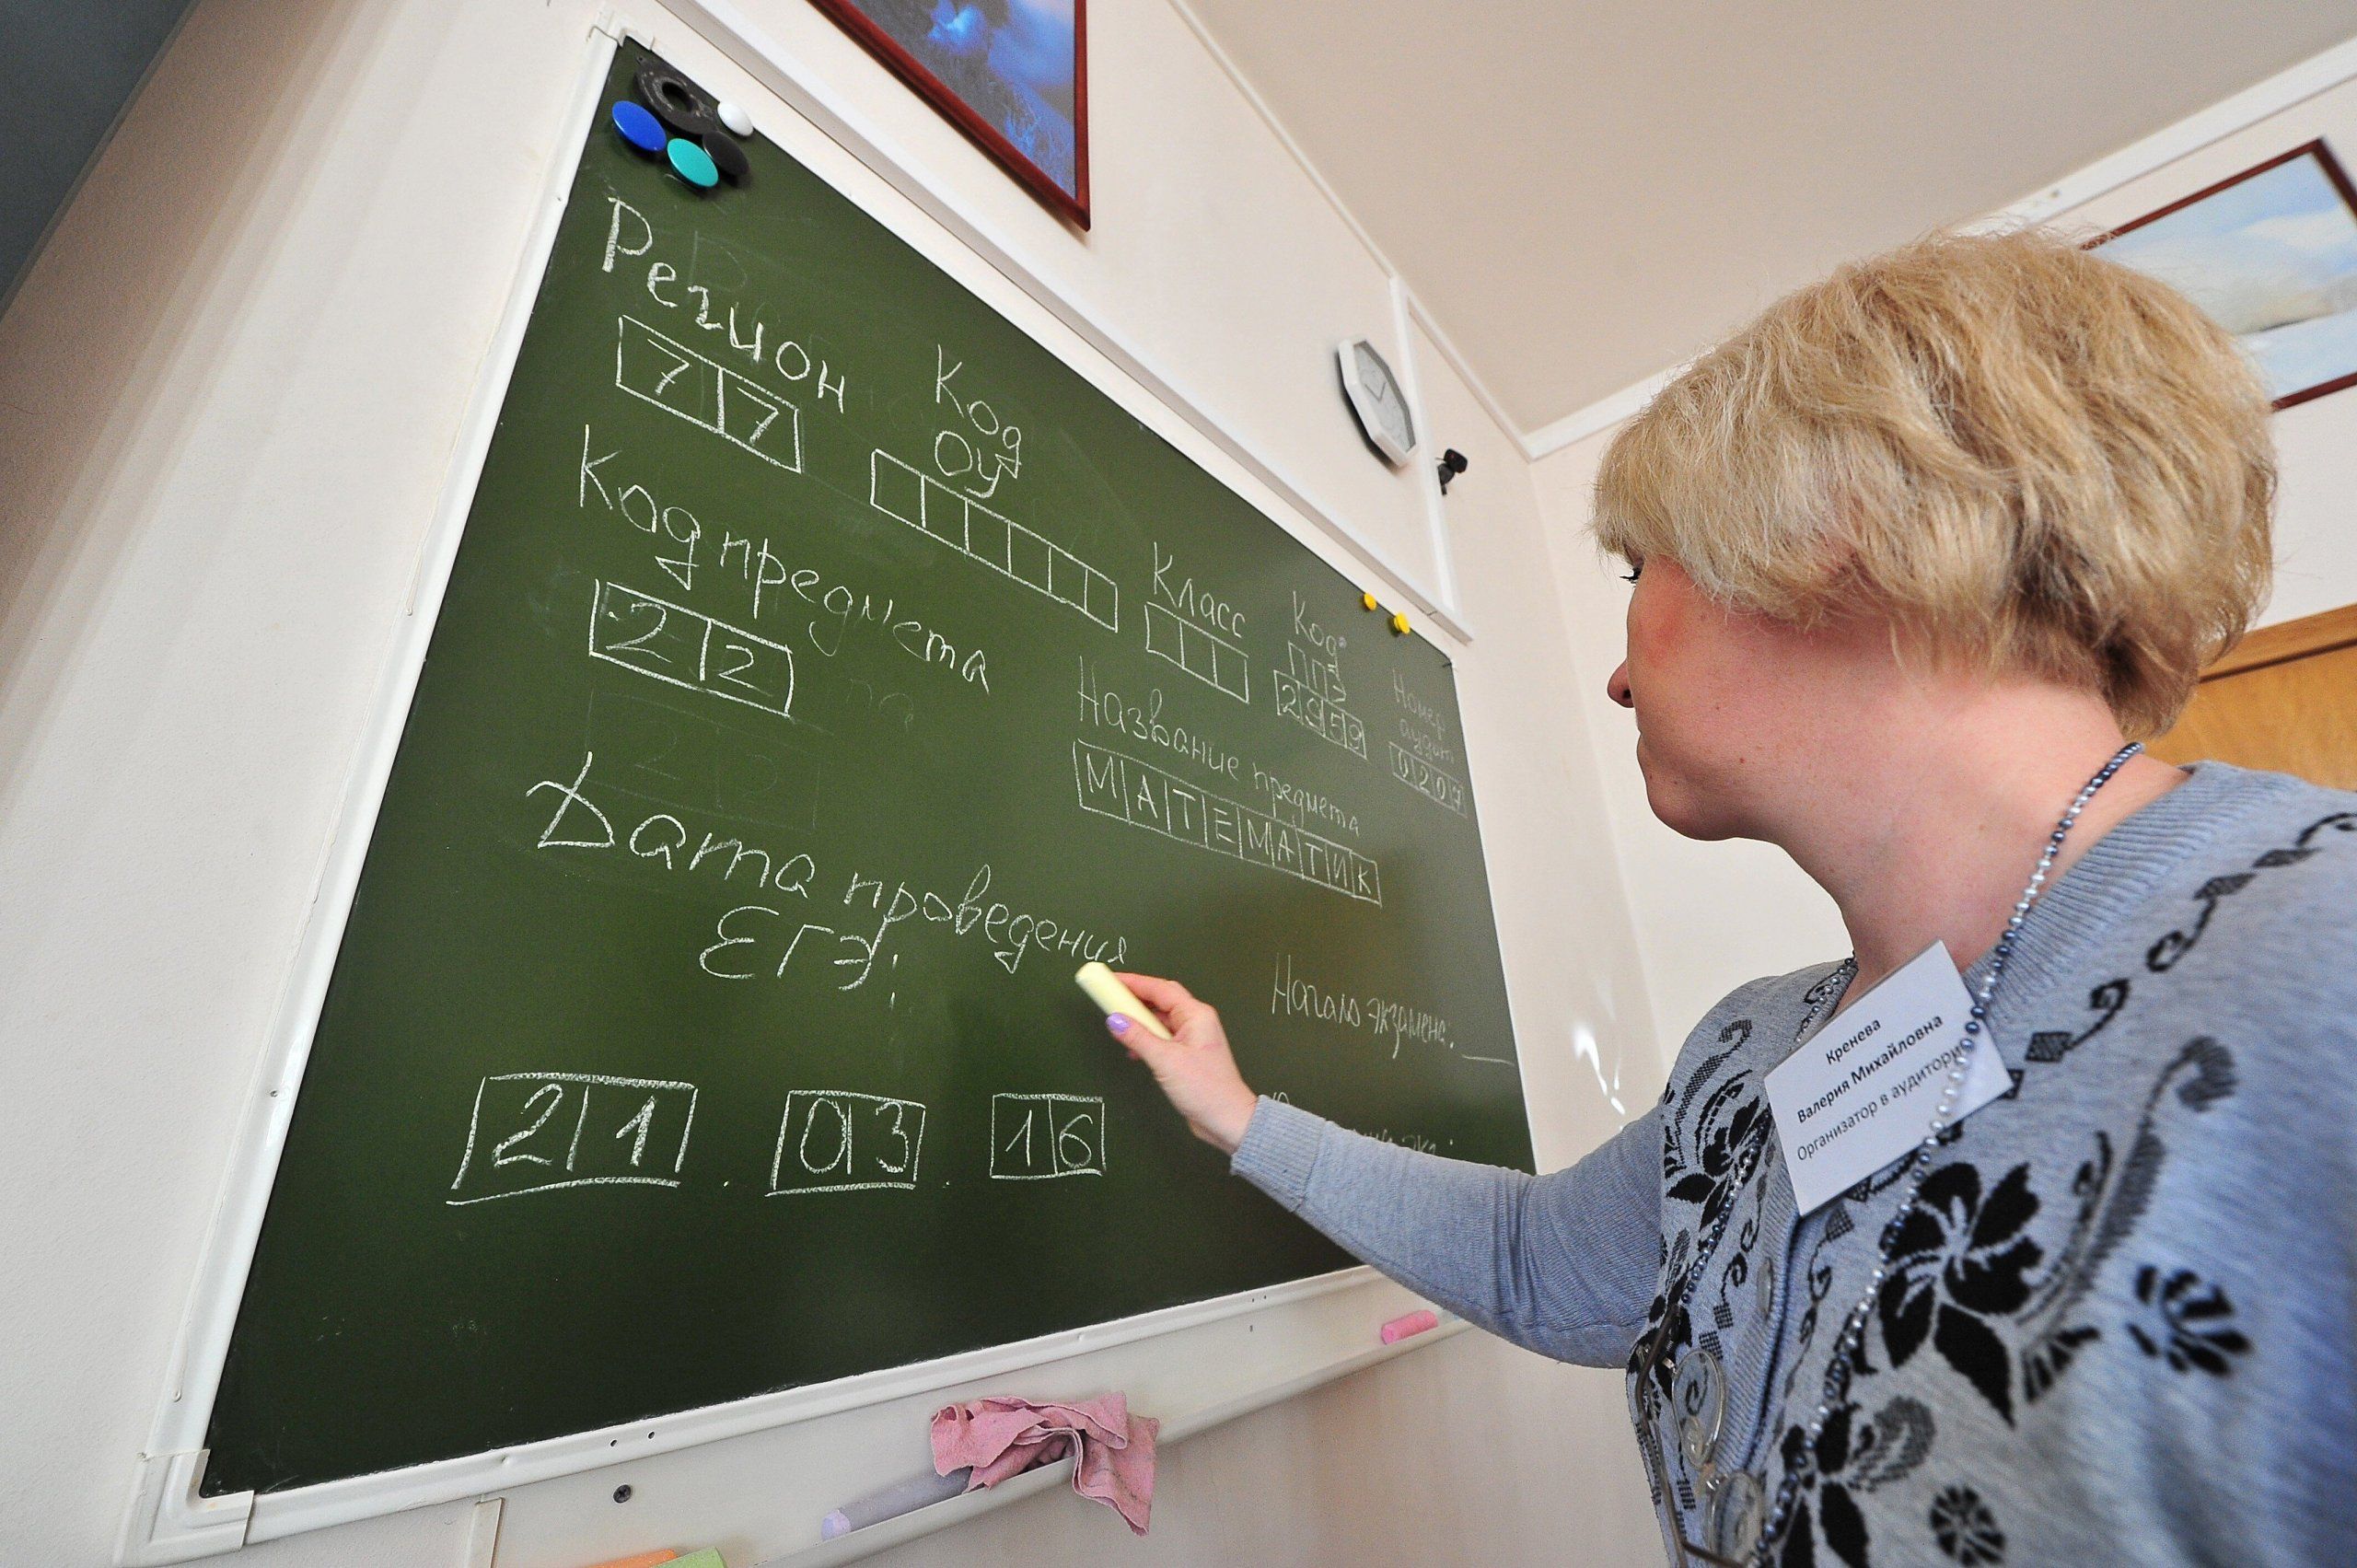 Регион
77
Код
ОУ
Класс
Код
ППЭ
2959
Номер
аудит
0207
Код предмета
22
Название предмета
МАТЕМАТИК
Дата проведения
ЕГЭ:
21.03.16
Начало экзамена:
Кренева
Валерия Михайловна
Организатор в аудитории